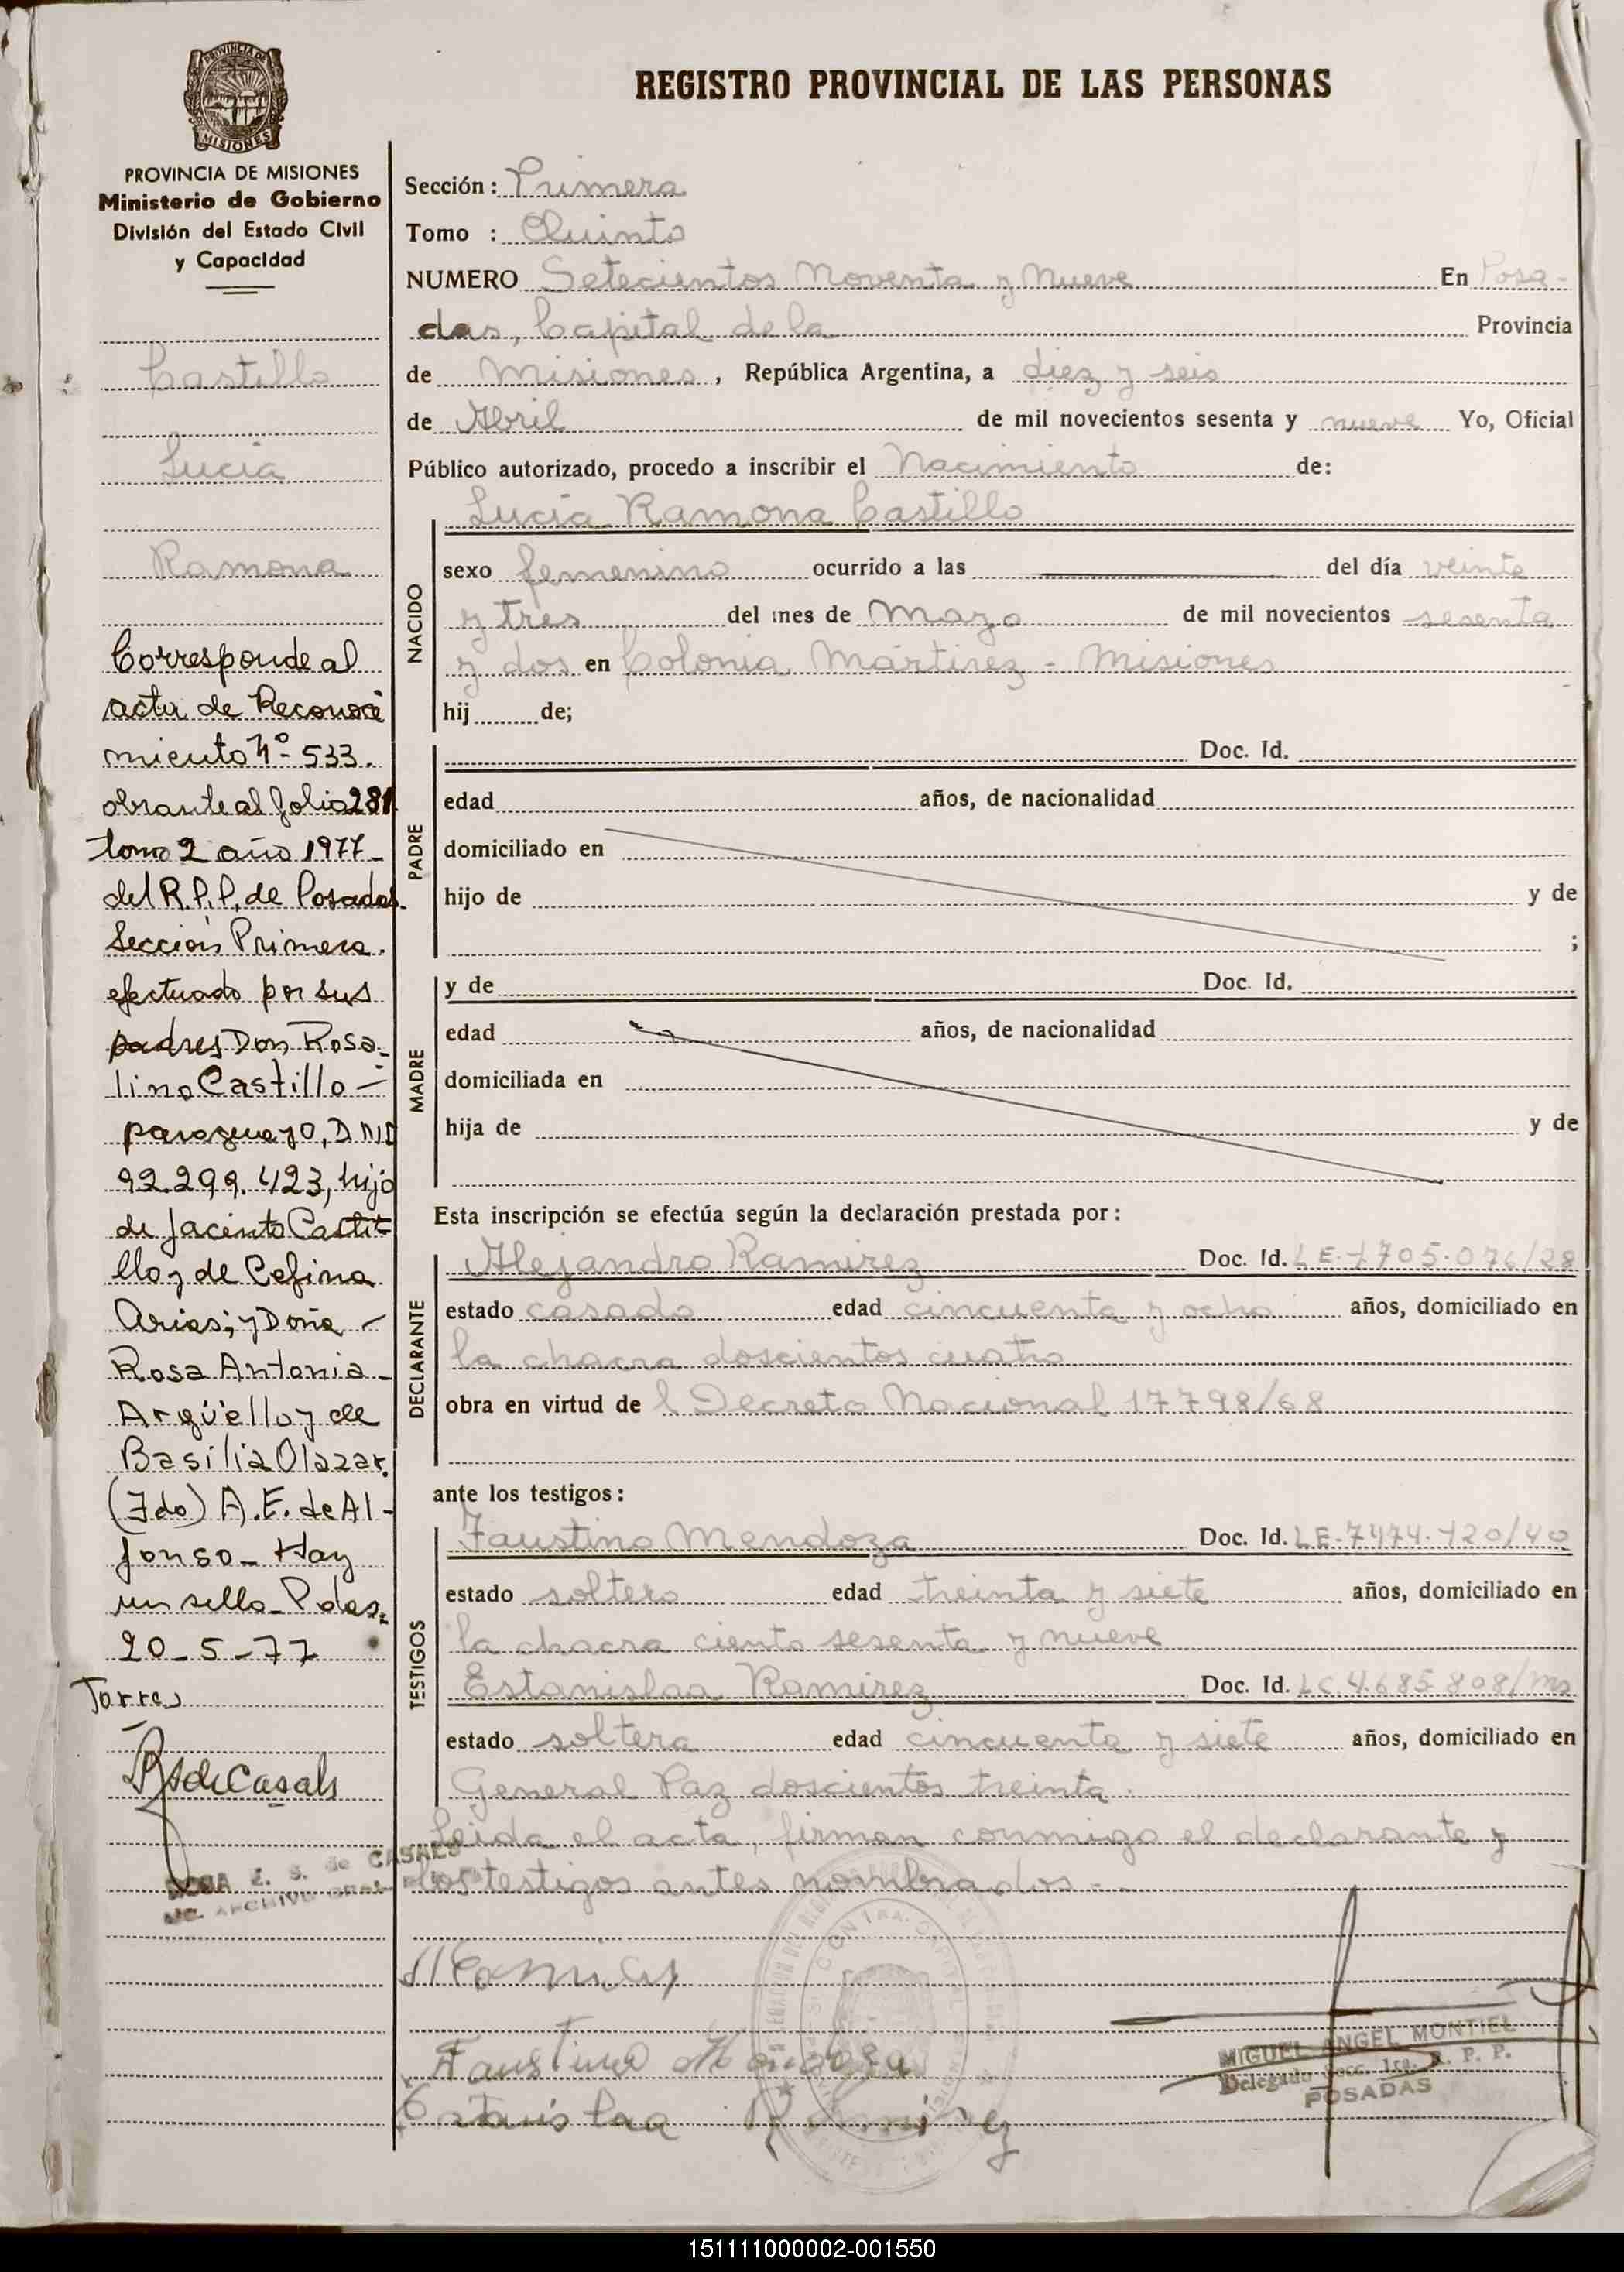 PROVINCIA DE
MISIONES
REGISTRO PROVINCIAL DE LAS PERSONAS
PROVINCIA DE MISIONES
Ministerio de Gobierno
División del Estado Civil
y Capacidad
Castillo
Lucia
Ramona
Corresponde al
acta de Reconoci
miento Nº 533.
obrante al folio 281
tomo 2 año 1977-
del R.P.P. de Posadas.
Sección Primera.
efectuado por sus
padres Don Rosa-
lino Castillo-
paraguayo, DNI
92.299.423, hijo
de Jacinto Casti
llo y de Cefina
Arias; y Doña -
Rosa Antonia -
Argüello y de
Basilia Olazar.
(Fdo) A.E. de Al-
fonso - Hay
un sello - Pdas.
20-5-77
Torres
de Casals
E. S. de CASALS
ARCHIVO GRAL
Sección: Primera
Tomo : Quinto
NUMERO Setecientos Noventa y Nueve En Posa-
das, Capital de la Provincia
de Misiones, República Argentina, a diez y seis
de Abril de mil novecientos sesenta y nueve Yo, Oficial
Público autorizado, procedo a inscribir el Nacimiento de:
Lucia Ramona Castillo
NACIDO
sexo femenino ocurrido a las del día veinte
y tres del mes de Mayo de mil novecientos sesenta
y dos en Colonia Mártirez - Misiones
hij de;
PADRE
Doc. Id.
edad años, de nacionalidad
domiciliado en
hijo de y de
;
MADRE
y de Doc. Id.
edad años, de nacionalidad
domiciliada en
hija de y de
Esta inscripción se efectúa según la declaración prestada por:
DECLARANTE
Alejandro Ramirez Doc. Id. L E-1705.076/28
estado casado edad cincuenta y ocho años, domiciliado en
la chacra doscientos cuatro
obra en virtud de l Decreto Nacional 17798/68
ante los testigos:
TESTIGOS
Faustino Mendoza Doc. Id. L E-7474.120/40
estado soltero edad treinta y siete años, domiciliado en
la chacra ciento sesenta y nueve
Estanislaa Ramirez Doc. Id. L C.4.685.808/ms
estado soltera edad cincuenta y siete años, domiciliado en
General Paz doscientos treinta.
Leida el acta, firman conmigo el declarante y
los testigos antes nombrados.-
Faustino Mendoza
Estanislaa Ramirez
MIGUEL ANGEL MONTIEL
Delegado Secc. 1ra. R. P. P.
POSADAS
151111000002-001550